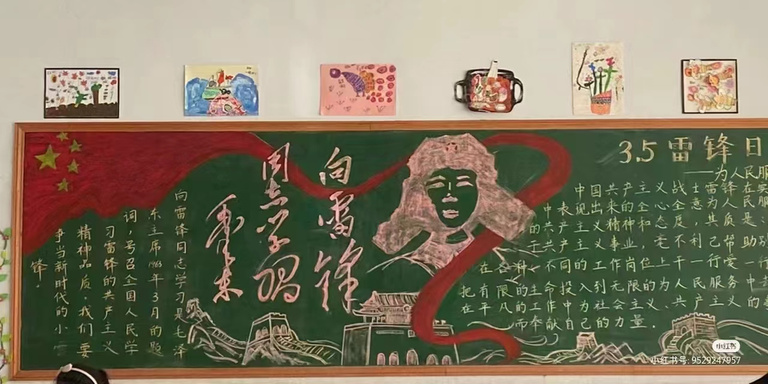 向雷锋
同志学习
毛泽东
向雷锋同志学习是毛泽
东主席1963年3月的题
词,号召全国人民学
习雷锋的共产主义
精神品质。我们要
争当新时代的小
锋!
3.5雷锋日
——为人民服
中国共产主义战士雷锋在实
中表现出来的全心全意为人民服
的共产主义精神和态度,其质是:
于共产主义事业,毫不利己帮助别
在各种不同的工作岗位上干一行爱一行
把有限的生命投入到无限的为人民服务中
在平凡的工作中为社会主义、共产主义的
而奉献自己的力量.
小红书
小红书号: 9529247957